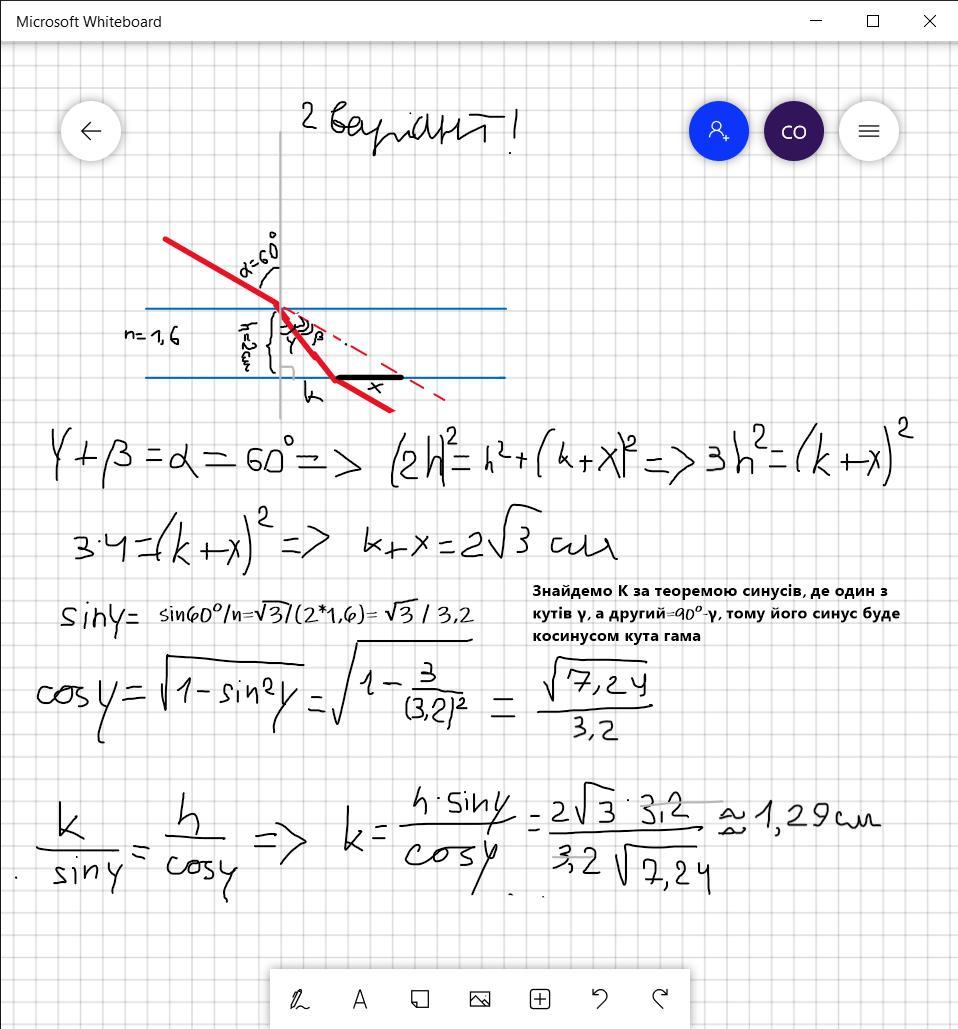 Microsoft Whiteboard
2 варіант!
CO
α=60°
n=1,6
h=2см
γ
β
k
x
γ+β=α=60°=> (2h)²=h²+(k+x)²=>3h²=(k+x)²
3·4=(k+x)²=> k+x=2√3 см
sinγ= sin60°/n=√3/(2*1,6)= √3 / 3,2
Знайдемо К за теоремою синусів, де один з
кутів γ, а другий=90°-γ, тому його синус буде
косинусом кута гама
cosγ=√(1-sin²γ)=√(1-3/(3,2)²) = √7,24/3,2
k/sinγ=h/cosγ => k=h·sinγ/cosγ=2√3·3,2/3,2√7,24≈1,29см
A